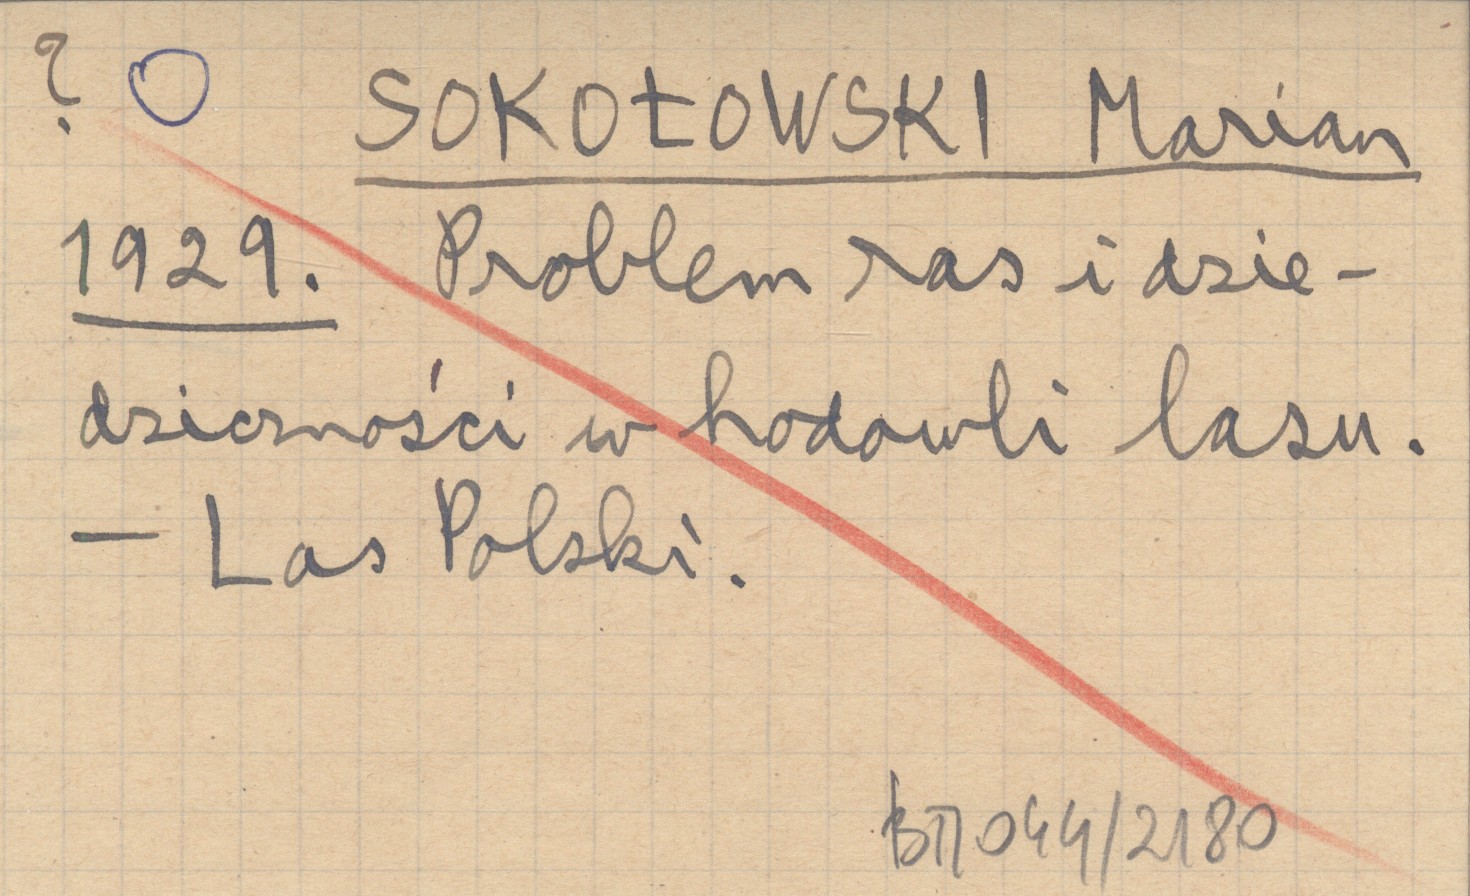 ? SOKOŁOWSKI Marian
1929. Problem ras i dzie-
dziczności w hodowli lasu.
– Las Polski.
044/2180